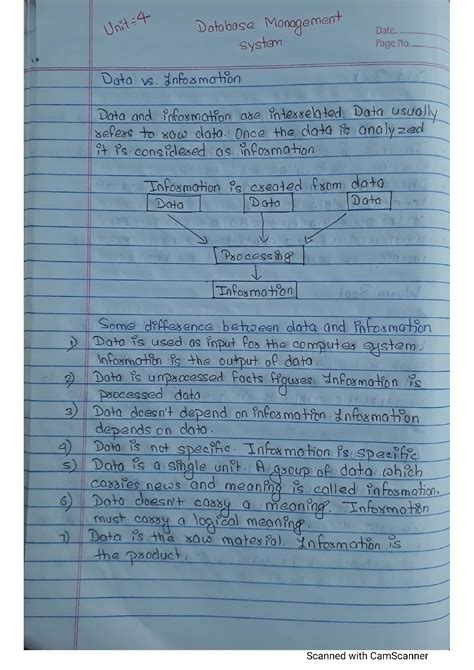 Unit:4
Database Management
System
Date.
Page No.
Data vs. Information
Data and information are interrelated. Data usually
refers to raw data. Once the data is analyzed
it is considered as information
Information is created from data
Data Data Data
Processing
Information
Some difference between data and information
1) Data is used as input for the computer system.
Information is the output of data.
2) Data is unprocessed facts figures. Information is
processed data.
3) Data doesn't depend on information. Information
depends on data.
4) Data is not specific. Information is specific.
5) Data is a single unit. A group of data which
carries news and meaning is called information.
6) Data doesn't carry a meaning. Information
must carry a logical meaning.
7) Data is the raw material. Information is
the product.
Scanned with CamScanner